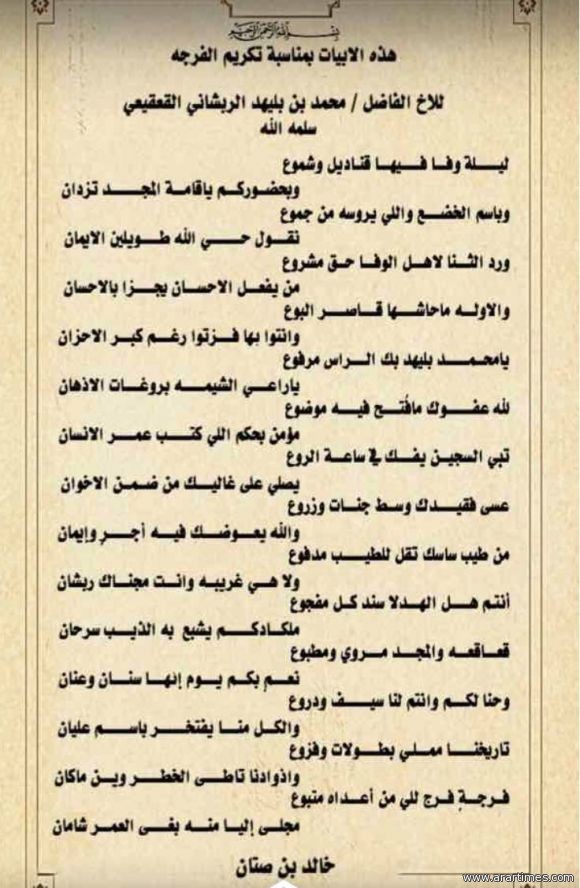 بسم الله الرحمن الرحيم
هذه الابيات بمناسبة تكريم الفرجه
للاخ الفاضل / محمد بن بليهد الربشاني القعقيعي
سلمه الله
ليلة وفا فيها قناديل وشموع
وبحضوركم ياقامة المجد تزدان
وباسم الخضع واللي يروسه من جموع
نقول حي الله طويلين الايمان
ورد الثنا لاهل الوفا حق مشروع
من يفعل الاحسان يجزا بالاحسان
والاوله ماحاشها قاصر البوع
وانتوا بها فزتوا رغم كبر الاحزان
يامحمد بليهد بك الراس مرفوع
ياراعي الشيمه بروغات الاذهان
لله عفوك مافُتح فيه موضوع
مؤمن بحكم اللي كتب عمر الانسان
تبي السجين يفك في ساعة الروع
يصلي على غاليك من ضمن الاخوان
عسى فقيدك وسط جنات وزروع
والله يعوضك فيه أجرٍ وإيمان
من طيب ساسك تقل للطيب مدفوع
ولا هي غريبه وانت مجناك ربشان
أنتم هل الهدلا سند كل مفجوع
ملكادكم يشبع به الذيب سرحان
قعاقعه والمجد مروي ومطبوع
نعم بكم يوم إنها سنان وعنان
وحنا لكم وانتم لنا سيف ودروع
والكل منا يفتخر باسم عليان
تاريخنا مملي بطولات وفزوع
واذوادنا تاطى الخطر وين ماكان
فرجةٍ فرج للي من أعداه متبوع
مجلى إليا منه بغى العمر شامان
خالد بن صنان
www.arartimes.com